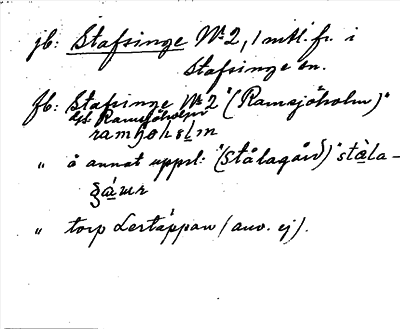 jb: Stafsinge Nr 2, 1 mtl. fr. i
Stafsinge sn.
fb: Stafsinge Nr 2 "(Ramsjöholm)"
Ramsjöholm
ramʃohɛlm
" å annat uppsl: "(Stålagård)" stàla-
gáur
" torp Lertäppan (anv. ej).